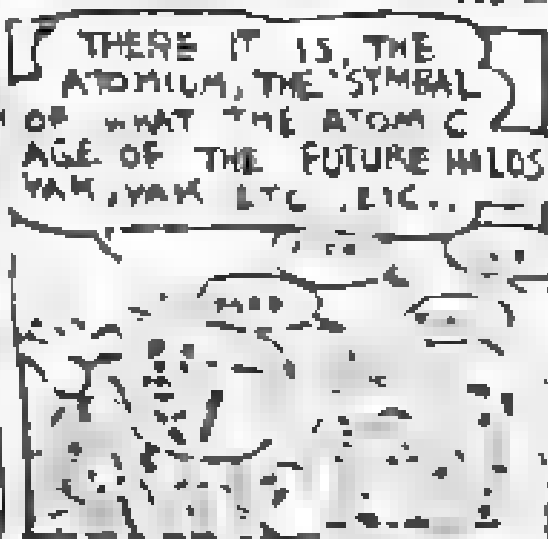 THERE IT IS, THE
ATOMIUM, THE SYMBAL
OF WHAT THE ATOMIC
AGE OF THE FUTURE HOLDS
YAK, YAK ETC, ETC..